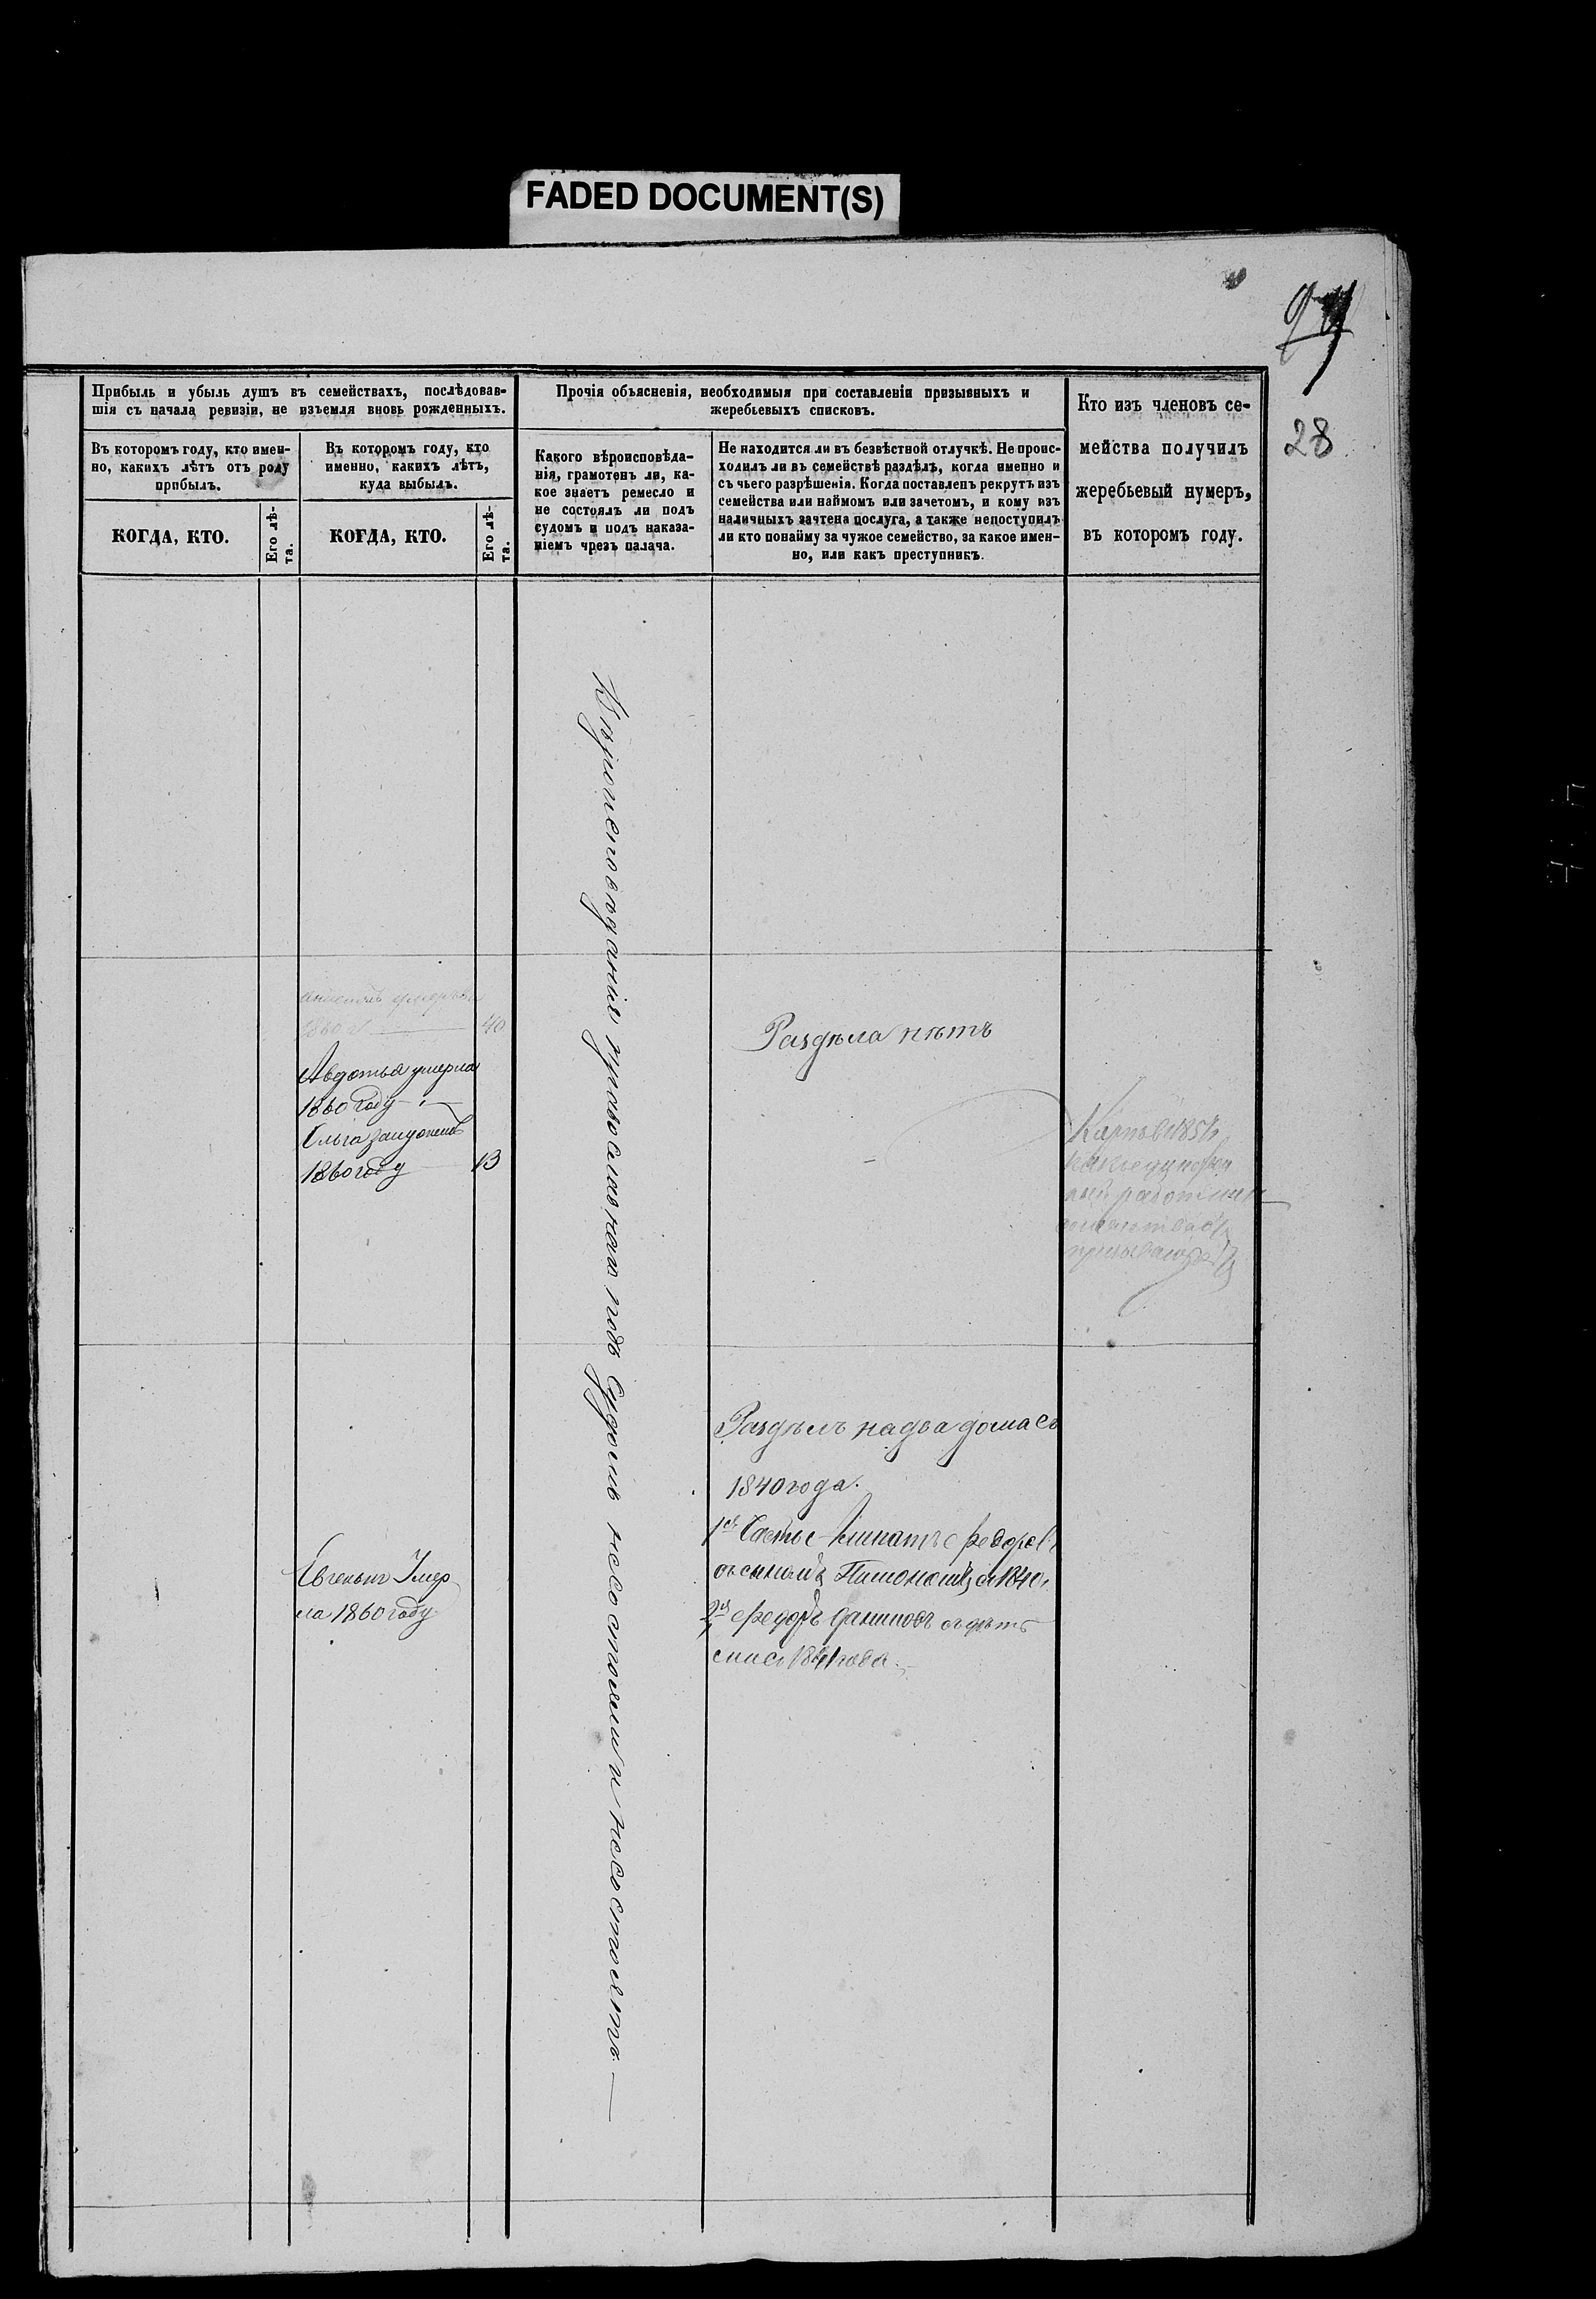 FADED DOCUMENT(S)
28
Прибыль и убыль душъ въ семействахъ, послѣдовав-
шія съ начала ревизіи, не изъемля вновь рожденныхъ.
Въ которомъ году, кто имен-
но, какихъ лѣтъ отъ роду
прибылъ.
КОГДА, КТО.
Его лѣ-
та.
Въ которомъ году, кто
именно, какихъ лѣтъ,
куда выбылъ.
КОГДА, КТО.
Его лѣ-
та.
Прочія объясненія, необходимыя при составленіи призывныхъ и
жеребьевыхъ списковъ.
Какого вѣроисповѣда-
нія, грамотенъ ли, ка-
кое знаетъ ремесло и
не состоялъ ли подъ
судомъ и подъ наказа-
ніемъ чрезъ палача.
Не находится ли въ безвѣстной отлучкѣ. Не проис-
ходилъ ли въ семействѣ раздѣлъ, когда именно и
съ чьего разрѣшенія. Когда поставленъ рекрутъ изъ
семейства или наймомъ или зачетомъ, и кому изъ
наличныхъ зачтена послуга, а также непоступилъ
ли кто понайму за чужое семейство, за какое имен-
но, или какъ преступникъ.
Кто изъ членовъ се-
мейства получилъ
жеребьевый нумеръ,
въ которомъ году.
умерла
1860 40
Авдотья умерла
1860 году
Ольга замужемъ
1860 году 13
Евгенья Умер
ла 1860 году
Вѣроисповѣданія православнаго подъ Судомъ несостояли и несостоятъ
Раздѣла нѣтъ
Раздѣлъ надва дома съ
1840 года.
1я Часть Федоровъ
съ сыномъ 1840
2я Федоръ съ дѣть
года
работник